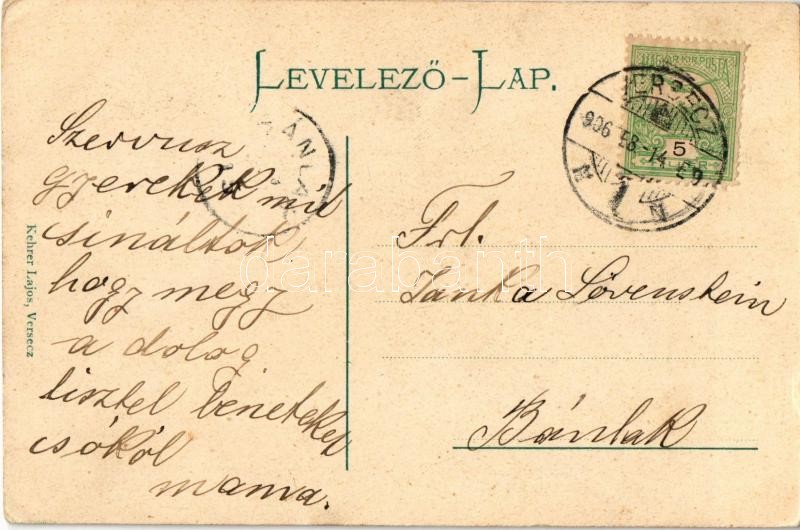 LEVELEZŐ-LAP.
MAGYAR KIR. POSTA
5
VERSECZ
906 FEB. 14. E9
N 1 N
BÁNLAK
Szervusz
gyerekek mit
sináltok
hogy megy
a dolog
tisztel benneteket
csókól
mama.
Frl.
Janka Lövenstein
Bánlak
Kehrer Lajos, Versecz
darabanth